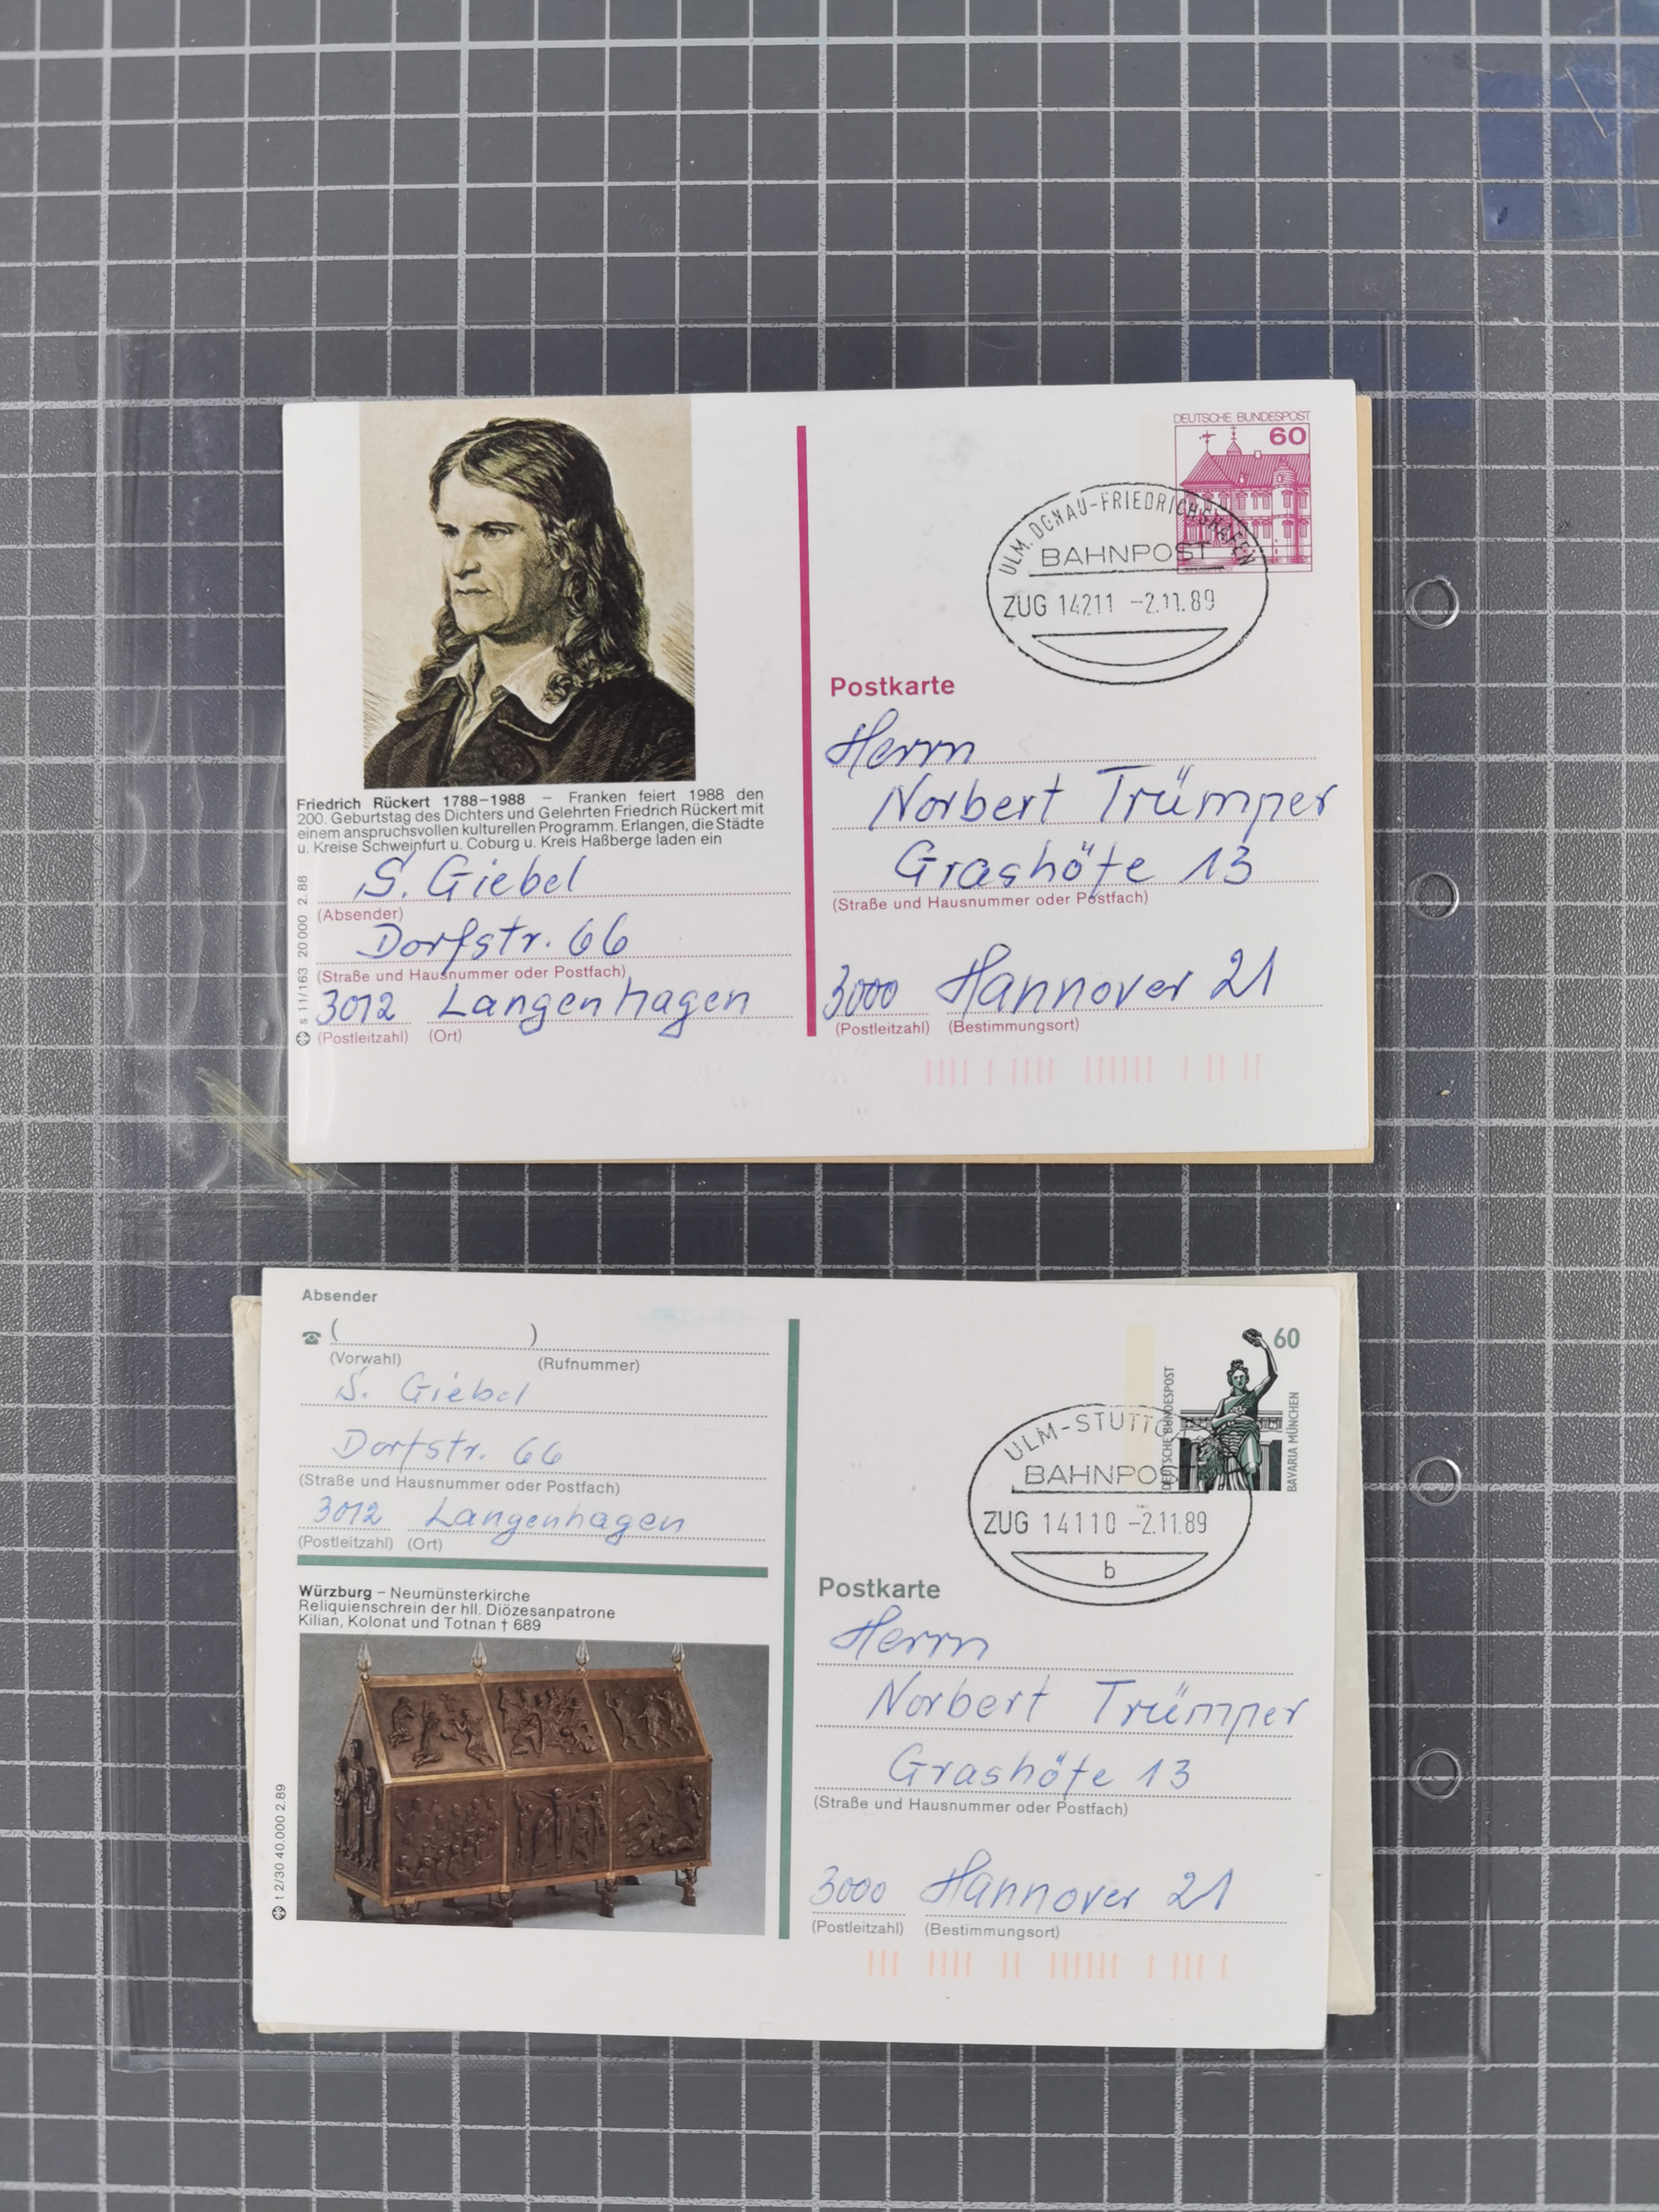 DEUTSCHE BUNDESPOST
60
ULM, DONAU-FRIEDRICHSHAFEN
BAHNPOST
ZUG 14211 -2.11.89
Postkarte
Herrn
Norbert Trümper
Grashöfe 13
(Straße und Hausnummer oder Postfach)
3000 Hannover 21
(Postleitzahl) (Bestimmungsort)
Friedrich Rückert 1788–1988 – Franken feiert 1988 den
200. Geburtstag des Dichters und Gelehrten Friedrich Rückert mit
einem anspruchsvollen kulturellen Programm. Erlangen, die Städte
u. Kreise Schweinfurt u. Coburg u. Kreis Haßberge laden ein
S. Giebel
(Absender)
Dorfstr. 66
(Straße und Hausnummer oder Postfach)
3012 Langenhagen
(Postleitzahl) (Ort)
s 11/163 20 000 2.88
Absender
( )
(Vorwahl) (Rufnummer)
S. Giebel
Dorfstr. 66
(Straße und Hausnummer oder Postfach)
3012 Langenhagen
(Postleitzahl) (Ort)
Würzburg – Neumünsterkirche
Reliquienschrein der hll. Diözesanpatrone
Kilian, Kolonat und Totnan † 689
t 2/30 40.000 2.89
60
DEUTSCHE BUNDESPOST
BAVARIA MÜNCHEN
ULM-STUTTG
BAHNPOST
ZUG 14110 -2.11.89
b
Postkarte
Herrn
Norbert Trümper
Grashöfe 13
(Straße und Hausnummer oder Postfach)
3000 Hannover 21
(Postleitzahl) (Bestimmungsort)